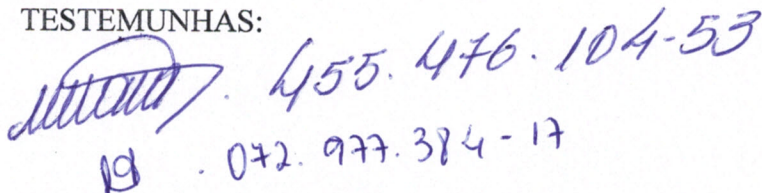 TESTEMUNHAS:
455.476.104-53
072.977.384-17